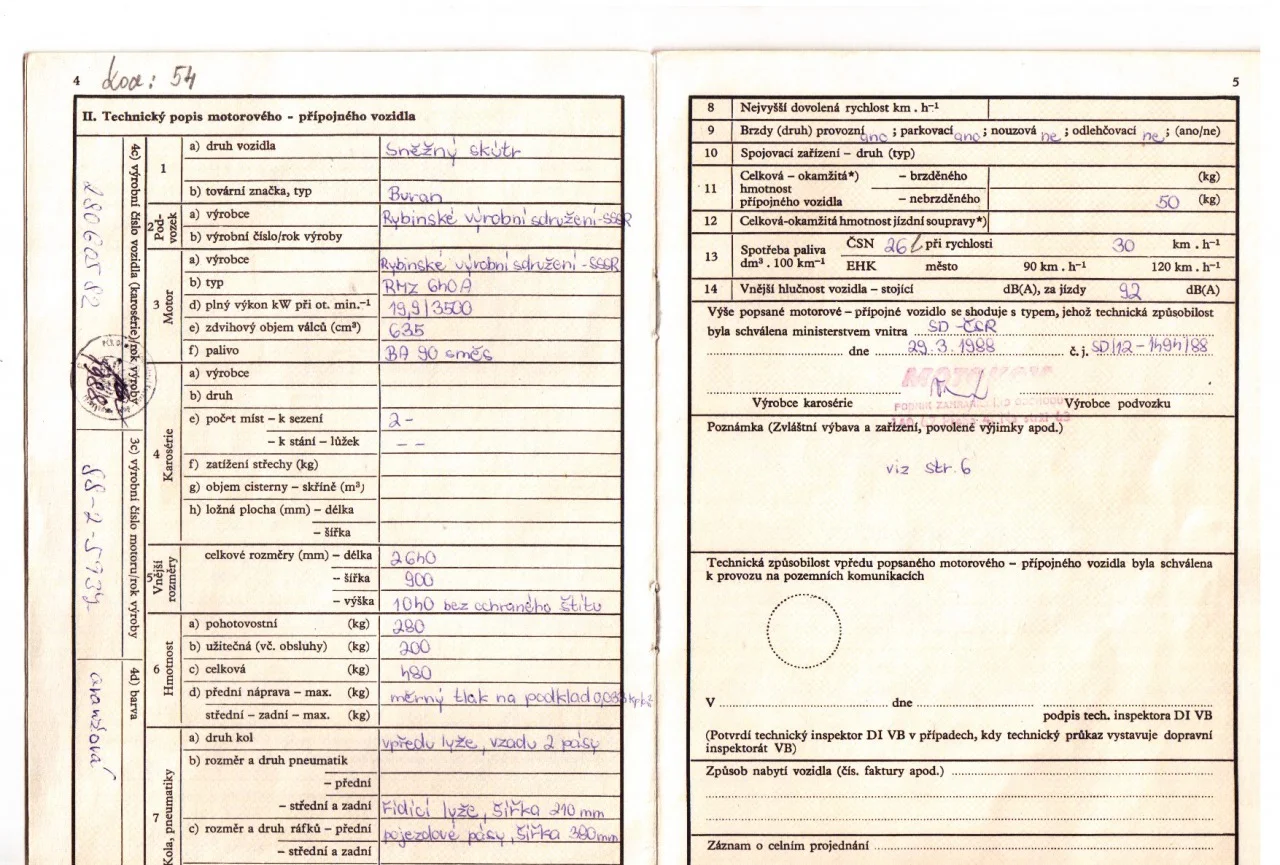 4 kód: 54
II. Technický popis motorového – přípojného vozidla
4c) výrobní číslo vozidla (karosérie)/rok výroby
280602582
1988
3c) výrobní číslo motoru/rok výroby
88-2-5939
4d) barva
oranžová
1
a) druh vozidla Sněžný skútr
b) tovární značka, typ Buran
2 Pod-vozek
a) výrobce Rybinské výrobní sdružení-SSSR
b) výrobní číslo/rok výroby
3 Motor
a) výrobce Rybinské výrobní sdružení-SSSR
b) typ RMZ 640A
d) plný výkon kW při ot. min.⁻¹ 19,9/3500
e) zdvihový objem válců (cm³) 635
f) palivo BA 90 směs
4 Karosérie
a) výrobce
b) druh
e) počet míst – k sezení 2 -
– k stání – lůžek - -
f) zatížení střechy (kg)
g) objem cisterny – skříně (m³)
h) ložná plocha (mm) – délka
– šířka
5 Vnější rozměry
celkové rozměry (mm) – délka 2640
– šířka 900
– výška 1040 bez ochraného štítu
6 Hmotnost
a) pohotovostní (kg) 280
b) užitečná (vč. obsluhy) (kg) 200
c) celková (kg) 480
d) přední náprava – max. (kg) měrný tlak na podklad
střední – zadní – max. (kg)
7 Kola, pneumatiky
a) druh kol vpředu lyže, vzadu 2 pásy
b) rozměr a druh pneumatik
– přední
– střední a zadní Řídící lyže, šířka 210 mm
c) rozměr a druh ráfků – přední pojezdové pásy, šířka 380 mm
– střední a zadní
5
8 Nejvyšší dovolená rychlost km . h⁻¹
9 Brzdy (druh) provozní ano ; parkovací ano ; nouzová ne ; odlehčovací ne ; (ano/ne)
10 Spojovací zařízení – druh (typ)
11 Celková – okamžitá*) hmotnost přípojného vozidla
– brzděného (kg)
– nebrzděného 50 (kg)
12 Celková-okamžitá hmotnost jízdní soupravy*)
13 Spotřeba paliva dm³ . 100 km⁻¹
ČSN 26 l při rychlosti 30 km . h⁻¹
EHK město 90 km . h⁻¹ 120 km . h⁻¹
14 Vnější hlučnost vozidla – stojící dB(A), za jízdy 92 dB(A)
Výše popsané motorové – přípojné vozidlo se shoduje s typem, jehož technická způsobilost
byla schválena ministerstvem vnitra SD -ČSR
dne 29.3.1988 č. j. SD/12-1494/88
MOTOKOV
Výrobce karosérie Výrobce podvozku
PODNIK ZAHRANIČNÍHO OBCHODU
Poznámka (Zvláštní výbava a zařízení, povolené výjimky apod.)
viz str. 6
Technická způsobilost vpředu popsaného motorového – přípojného vozidla byla schválena
k provozu na pozemních komunikacích
V dne
podpis tech. inspektora DI VB
(Potvrdí technický inspektor DI VB v případech, kdy technický průkaz vystavuje dopravní
inspektorát VB)
Způsob nabytí vozidla (čís. faktury apod.)
Záznam o celním projednání